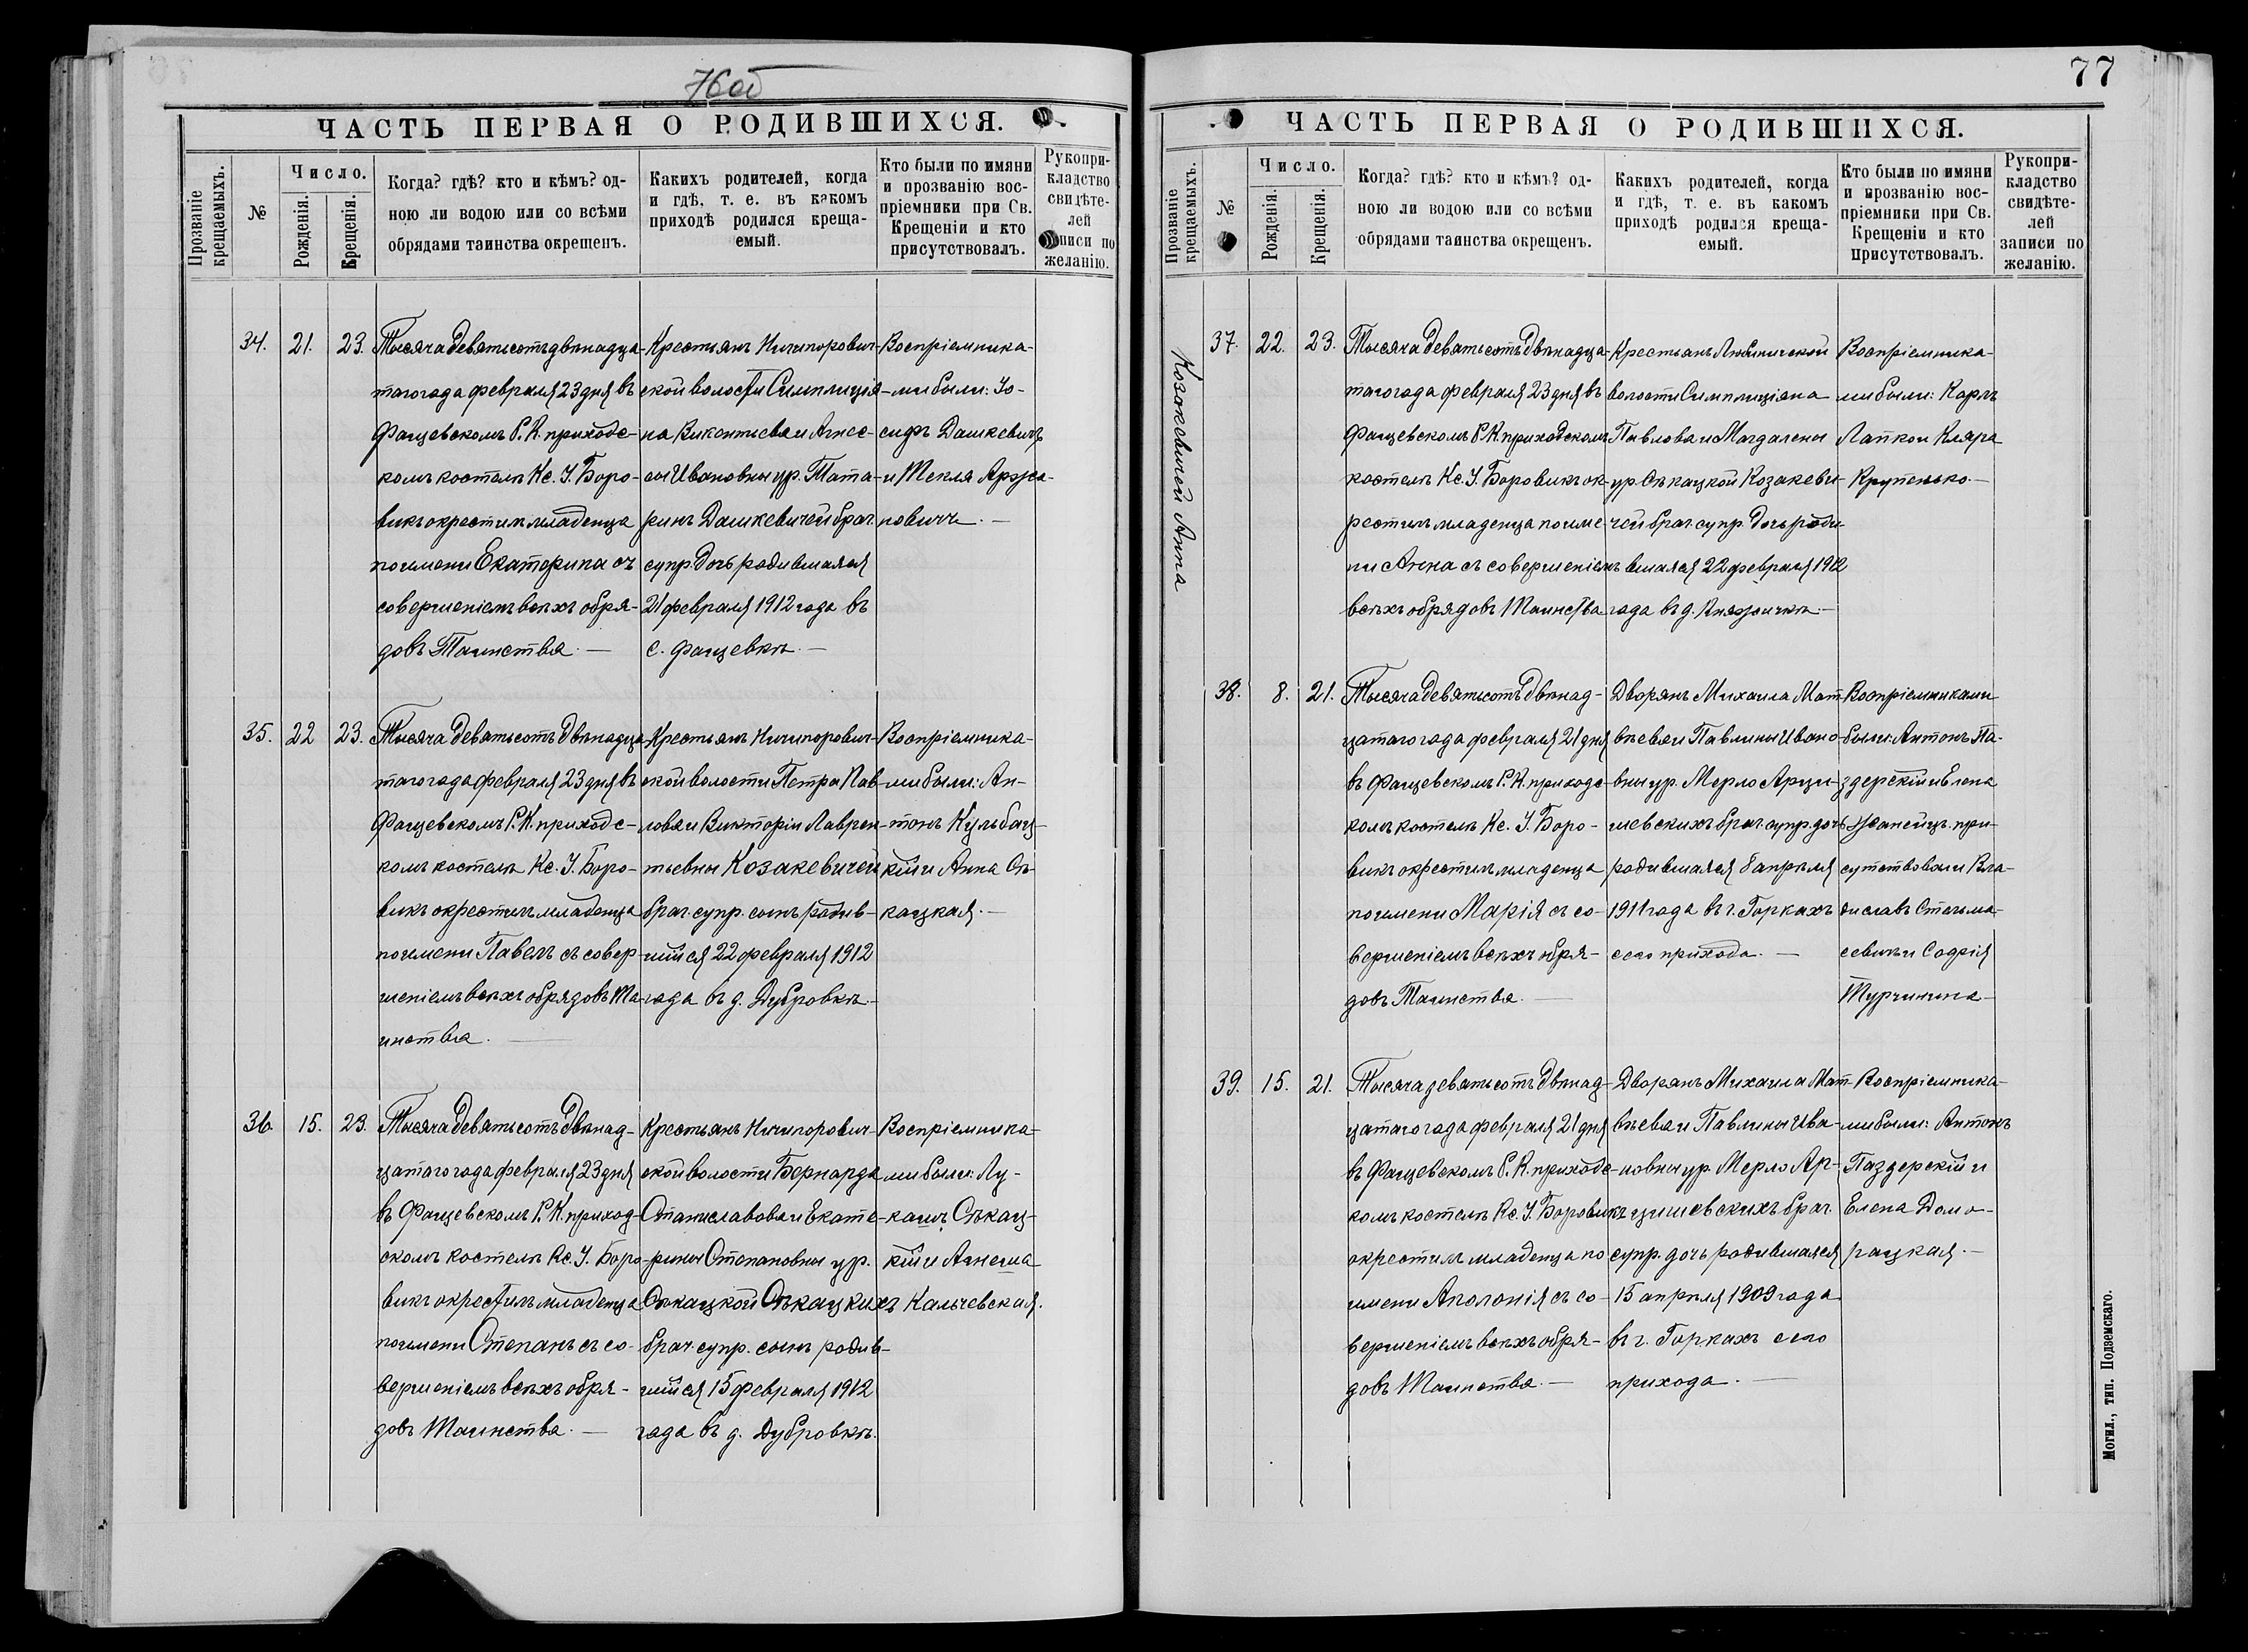 76об
ЧАСТЬ ПЕРВАЯ О РОДИВШИХСЯ.
Прозваніе крещаемыхъ.
№
Число.
Рожденія.
Крещенія.
Когда? гдѣ? кто и кѣмъ? од-
ною ли водою или со всѣми
обрядами таинства окрещенъ.
Какихъ родителей, когда
и гдѣ, т. е. въ какомъ
приходѣ родился креща-
емый.
Кто были по имяни
и прозванію вос-
пріемники при Св.
Крещеніи и кто
присутствовалъ.
Рукопри-
кладство
свидѣте-
лей
записи по
желанію.
34. 21. 23.
Тысяча девятьсотъ двѣнадца-
таго года февраля 23 дня въ
Фащевскомъ Р. К. приходс-
комъ костелѣ Кс. І. Боро-
викъ окрестилъ младенца
по имени Екатерина съ
совершеніемъ всѣхъ обря-
довъ Таинства. —
Крестьянъ Ничипорович-
ской волости Симплиція-
на Викентьева и Агнес-
сы Ивановны ур. Тата-
ринъ Дашкевичей брач.
супр. дочь родившаяся
21 февраля 1912 года въ
с. Фащевкѣ. —
Воспріемника-
ми были: Іо-
сифъ Дашкевичъ
и Текля Аржа-
новичъ. —
35. 22 23.
Тысяча девятьсотъ двѣнадца-
таго года февраля 23 дня въ
Фащевскомъ Р. К. приходс-
комъ костелѣ Кс. І. Боро-
викъ окрестилъ младенца
по имени Павелъ съ совер-
шеніемъ всѣхъ обрядовъ Та-
инства. —
Крестьянъ Ничипорович-
ской волости Петра Пав-
лова и Викторіи Лаврен-
тьевны Козакевичей
брач. супр. сынъ родив-
шійся 22 февраля 1912
года въ д. Дубровкѣ. —
Воспріемника-
ми были: Ан-
тонъ Кульбац-
кій и Анна Сѣ-
кацкая. —
36. 15. 23.
Тысяча девятьсотъ двѣнад-
цатаго года февраля 23 дня
въ Фащевскомъ Р. К. приход-
скомъ костелѣ Кс. І. Боро-
викъ окрестилъ младенца
по имени Степанъ съ со-
вершеніемъ всѣхъ обря-
довъ Таинства. —
Крестьянъ Ничипорович-
ской волости Бернарда
Станиславова и Екате-
рины Степановны ур.
Сѣкацкой Сѣкацкихъ
брач. супр. сынъ родив-
шійся 15 февраля 1912
года въ д. Дубровкѣ.
Воспріемника-
ми были: Лу-
кашъ Сѣкац-
кій и Агнеша
Кальчевская.
77
ЧАСТЬ ПЕРВАЯ О РОДИВШИХСЯ.
Прозваніе крещаемыхъ.
№
Число.
Рожденія.
Крещенія.
Когда? гдѣ? кто и кѣмъ? од-
ною ли водою или со всѣми
обрядами таинства окрещенъ.
Какихъ родителей, когда
и гдѣ, т. е. въ какомъ
приходѣ родился креща-
емый.
Кто были по имяни
и прозванію вос-
пріемники при Св.
Крещеніи и кто
присутствовалъ.
Рукопри-
кладство
свидѣте-
лей
записи по
желанію.
Козакевичей Анна
37. 22. 23.
Тысяча девятьсотъ двѣнадца-
таго года февраля 23 дня въ
Фащевскомъ Р. К. приходскомъ
костелѣ Кс. І. Боровикъ ок-
рестилъ младенца по име-
ни Анна съ совершеніемъ
всѣхъ обрядовъ Таинства
Крестьянъ Любиничской
волости Симплиціяна
Павлова и Магдалены
ур. Сѣкацкой Козакеви-
чей брач. супр. дочь роди-
вшаяся 22 февраля 1912
года въ д. Княжичкѣ. —
Воспріемника-
ми были: Карлъ
Лапко и Кляра
Крупенько. —
38. 8. 21.
Тысяча девятьсотъ двѣнад-
цатаго года февраля 21 дня
въ Фащевскомъ Р. К. приходс-
комъ костелѣ Кс. І. Боро-
викъ окрестилъ младенца
по имени Марія съ со-
вершеніемъ всѣхъ обря-
довъ Таинства. —
Дворянъ Михаила Мат-
вѣева и Павлины Ивано-
вны ур. Мерло Арци-
шевскихъ брач. супр. дочь
родившаяся 8 апрѣля
1911 года въ г. Горкахъ
сего прихода. —
Воспріемниками
были: Антонъ Па-
здерскій и Елена
Жанейцъ. при-
сутствовали Вла-
диславъ Стельма-
севичъ и Софія
Турчинина —
39. 15. 21.
Тысяча девятьсотъ двѣнад-
цатаго года февраля 21 дня
въ Фащевскомъ Р. К. приходс-
комъ костелѣ Кс. І. Боровикъ
окрестилъ младенца по
имени Аполонія съ со-
вершеніемъ всѣхъ обря-
довъ Таинства. —
Дворянъ Михаила Мат-
вѣева и Павлины Ива-
новны ур. Мерло Ар-
цишевскихъ брач.
супр. дочь родившаяся
15 апрѣля 1909 года
въ г. Горкахъ сего
прихода. —
Воспріемника-
ми были: Антонъ
Паздерскій и
Елена Домо-
рацкая. —
Могил., тип. Подземскаго.